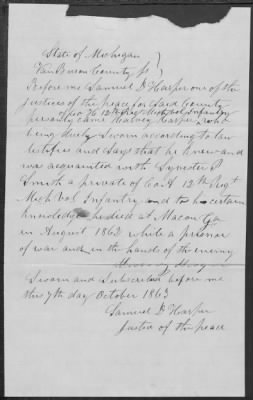 State of Michigan )
VanBuren County ss )
Before me Samuel D Harper one of the
justices of the peace for Said County
of Co. H 12th Reg Mich Vol Infantry
personly came Harvey Harper who
being duly Sworn according to law
testifies and Says that he knew and
was acquainted with Sylvester P
Smith a private of Co A 12th Regt
Mich Vol Infantry and to his certain
knowledge he died at Macon Ga
in August 1862 while a prisoner
of war and in the hands of the enemy
Sworn and Subscribed before me
this 7th day October 1863
Samuel D Harper
Justice of the peace